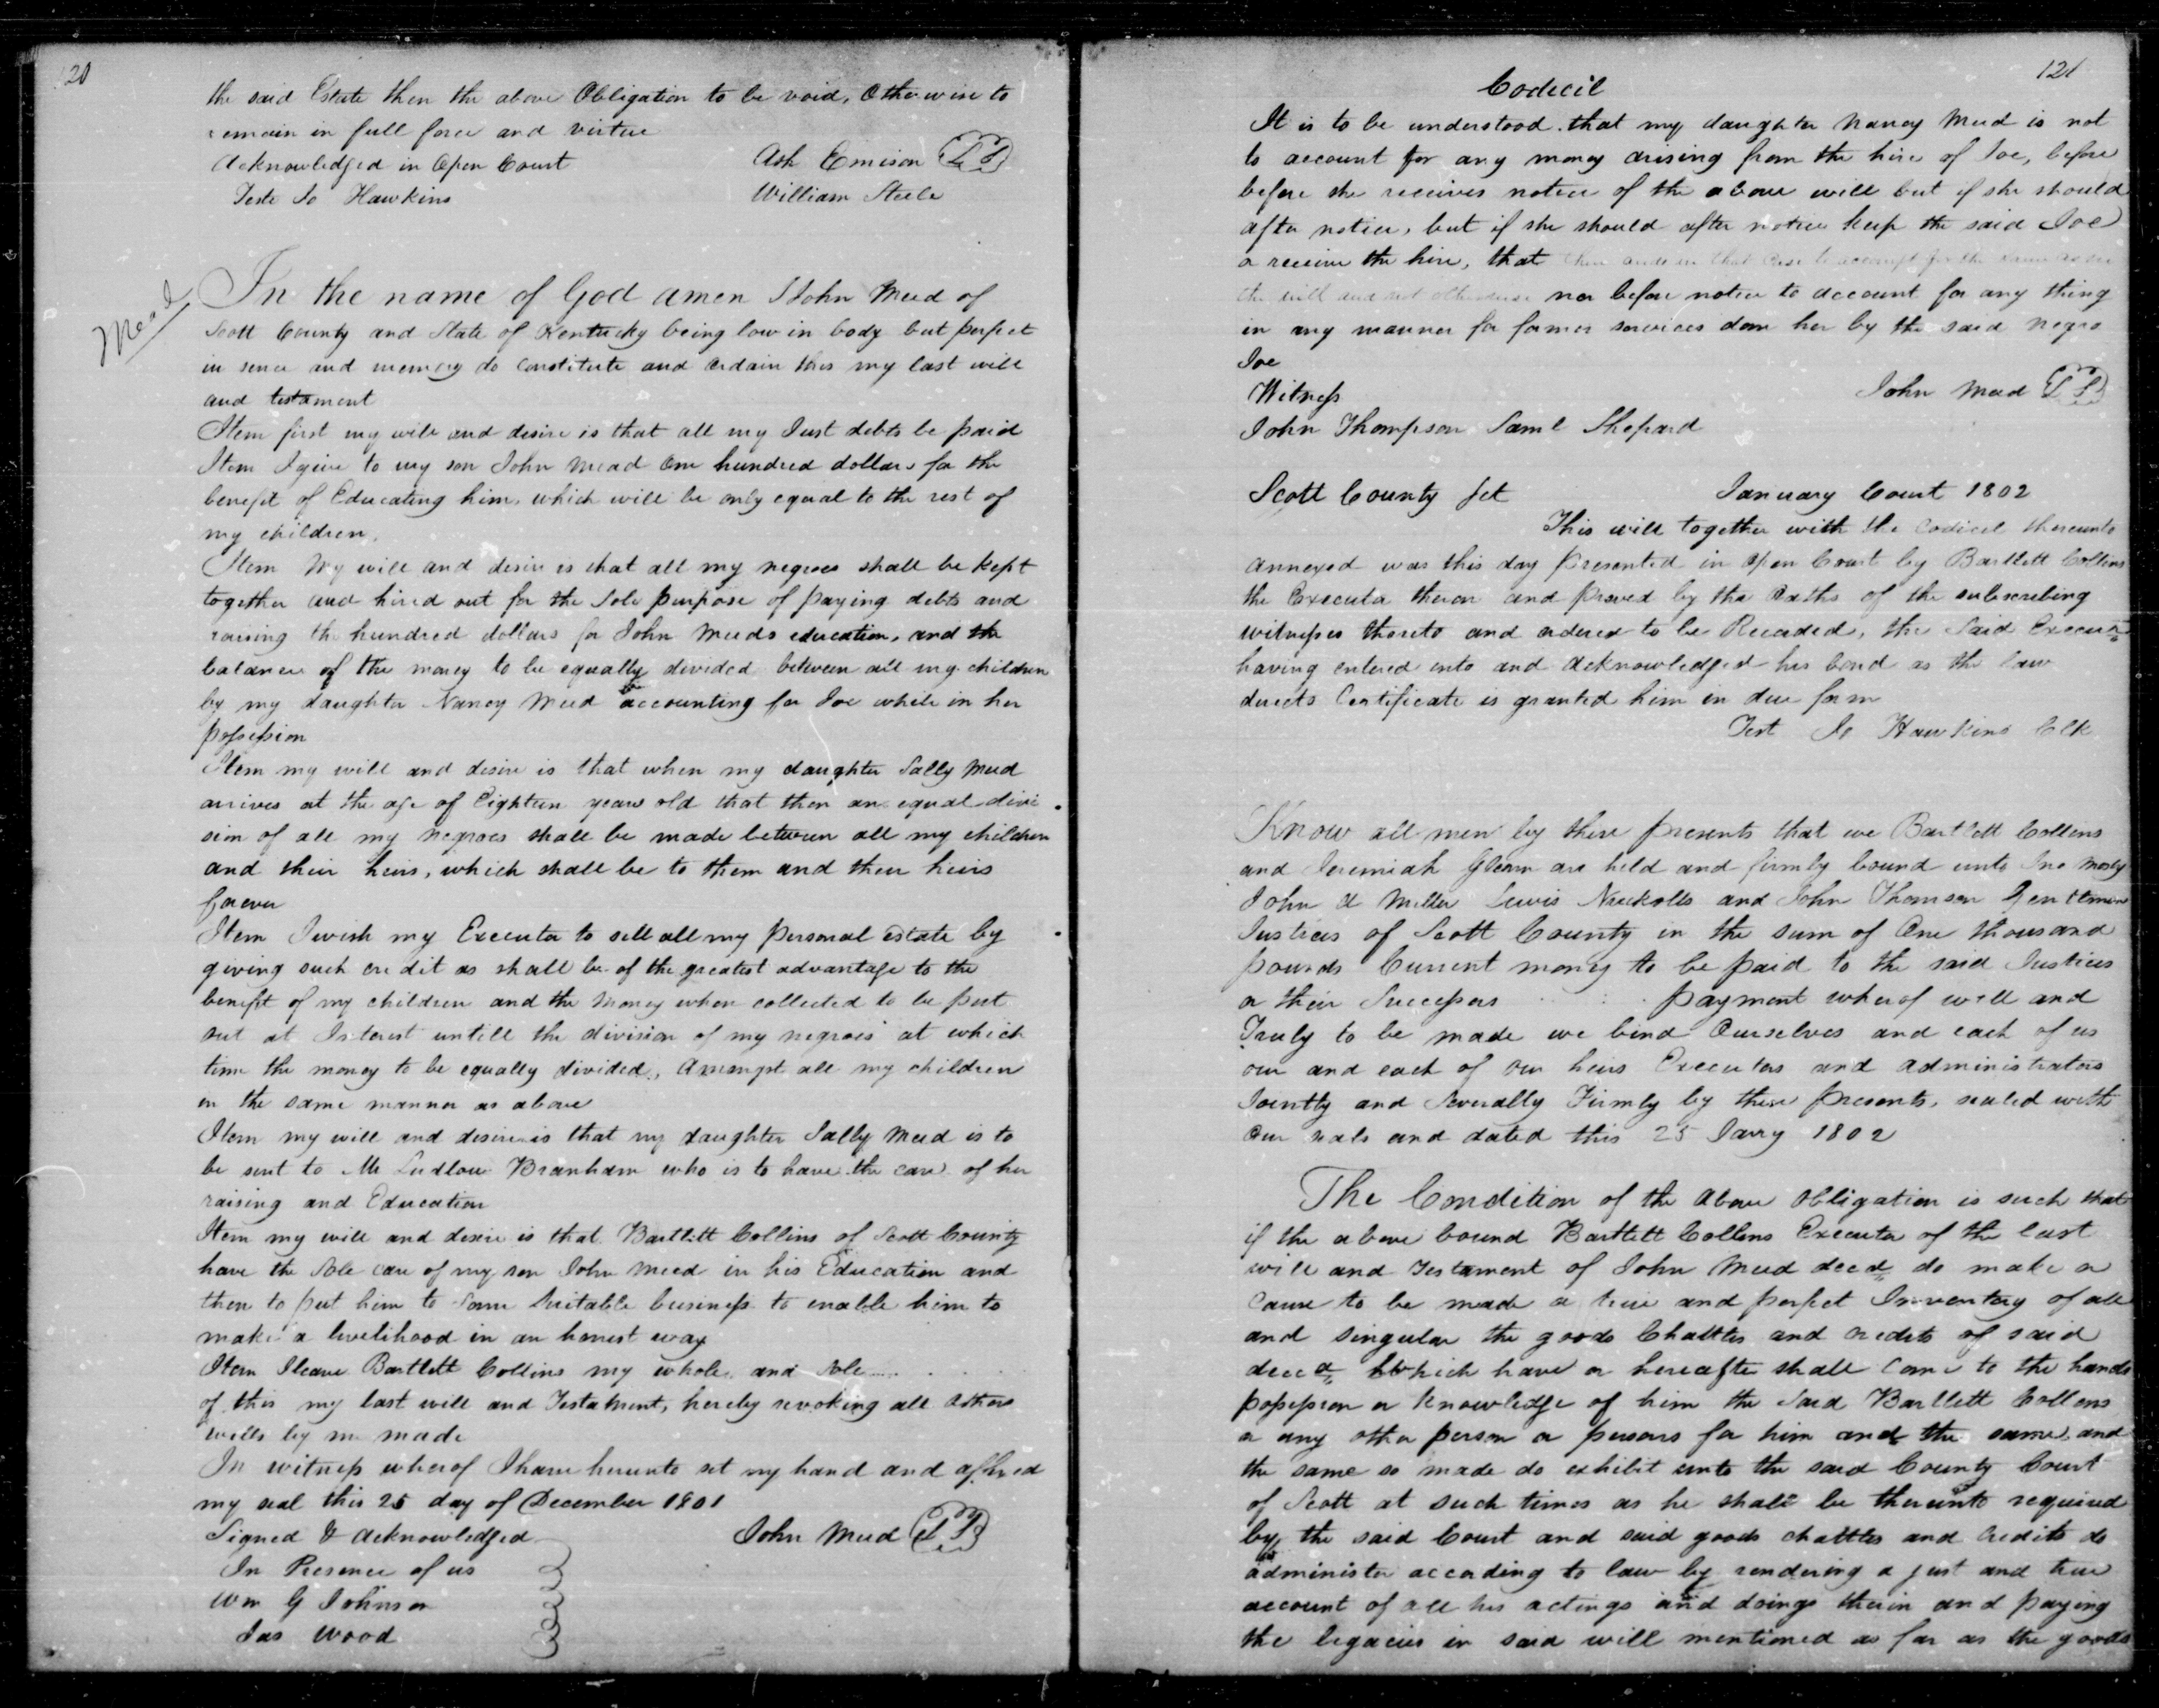 120
the said Estate then the above Obligation to be void, Otherwise to
remain in full force and virtue
Acknowledged in Open Court
Ash Emison L S
Teste Jo Hawkins
William Steele
Mead
In the name of God amen I John Meed of
Scott County and State of Kentucky being low in body but perfect
in sence and memory do constitute and ordain this my last will
and testament
Item first my will and desire is that all my Just debts be paid
Item I give to my son John Mead One hundred dollars for the
benefit of Educating him, which will be only equal to the rest of
my children.
Item My will and desire is that all my negroes shall be kept
together and hired out for the Sole purpose of paying debts and
raising the hundred dollars for John Meeds education, and the
balance of the money to be equally devided between all my children
by my daughter Nancy Meed accounting for Joe while in her
possession
Item my will and desire is that when my daughter Sally Meed
arrives at the age of Eighteen years old that then an equal divi
sion of all my negroes shall be made between all my children
and their heirs, which shall be to them and their heirs
forever
Item I wish my Executor to sell all my personal estate by
giving such credit as shall be of the greatest advantage to the
benefit of my children and the money when collected to be put
out at Interest untill the division of my negroes at which
time the money to be equally divided, Amongst all my children
in the same manner as above
Item my will and desire is that my daughter Sally Meed is to
be sent to Mr Ludlow Branham who is to have the care of her
raising and Education
Item my will and desire is that Bartlett Collins of Scott County
have the Sole care of my son John Meed in his Education and
then to put him to Some Suitable business to enable him to
make a livelihood in an honest way
Item I leave Bartlett Collins my whole and Sole
of this my last will and Testatment, hereby revoking all others
wills by me made
In witness wherof I have herunto set my hand and affixed
my seal this 25 day of December 1801
Signed & Acknowledged
John Meed L S
In Presence of us
Wm G Johnson
Jas Wood
121
Codecil
It is to be understood that my daughter Nancy Meed is not
to account for any money arising from the hire of Joe, before
before she receives notice of the above will but if she should
after notice, but if she should after notice keep the said Joe
or receive the hire, that then and in that case to account for the same as
the will and not otherwise nor before notice to account for any thing
in any manner for former services done her by the said negro
Joe
Witness
John Meed L S
John Thompson Saml Shepard
Scott County Sct
January Court 1802
This will together with the Codicil thereunto
annexed was this day presented in Open Court by Bartlett Collins
the Executor theron and proved by the Oaths of the subscribing
witnesses thereto and ordered to be Recorded, the Said Executr
having entered into and Acknowledged his bond as the law
directs Certificate is granted him in due form
Test Jo Hawkins Clk
Know all men by these presents that we Bartlett Collens
and Jeremiah Glenn are held and firmly bound unto Jno Mosby
John A Miller Lewis Nuckolls and John Thomson Gentlemen
Justices of Scott County in the sum of One thousand
pounds Current money to be paid to the said Justices
or their Successors payment wherof well and
Truly to be made we bind Ourselves and each of us
our and each of our heirs Executors and administrators
Jointly and Severally Firmly by these presents, sealed with
Our seals and dated this 25 Jany 1802
The Condition of the above obligation is such that
if the above bound Bartlett Collens Executor of the last
will and testament of John Meed decd do make or
Cause to be made a true and perfect Inventory of all
and singular the goods Chattles and credits of said
decd Which have or hereafter shall Come to the hands
possession or Knowledge of him the Said Bartlett Collens
or any other person or persons for him and the same and
the same so made do exhibit unto the said County Court
of Scott at such times as he shall be thereunto required
by the said Court and said goods chattles and Credits do
administer according to law by rendering a just and true
account of all his actings and doings therin and paying
the legacies in said will mentioned as far as the goods